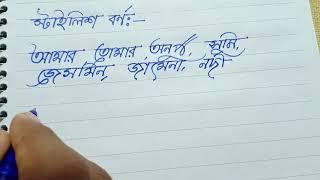 স্টাইলিশ বর্ন:—
আমার তোমার, অনর্থ, সুমি,
জেসমিন, জামেনা, নদী